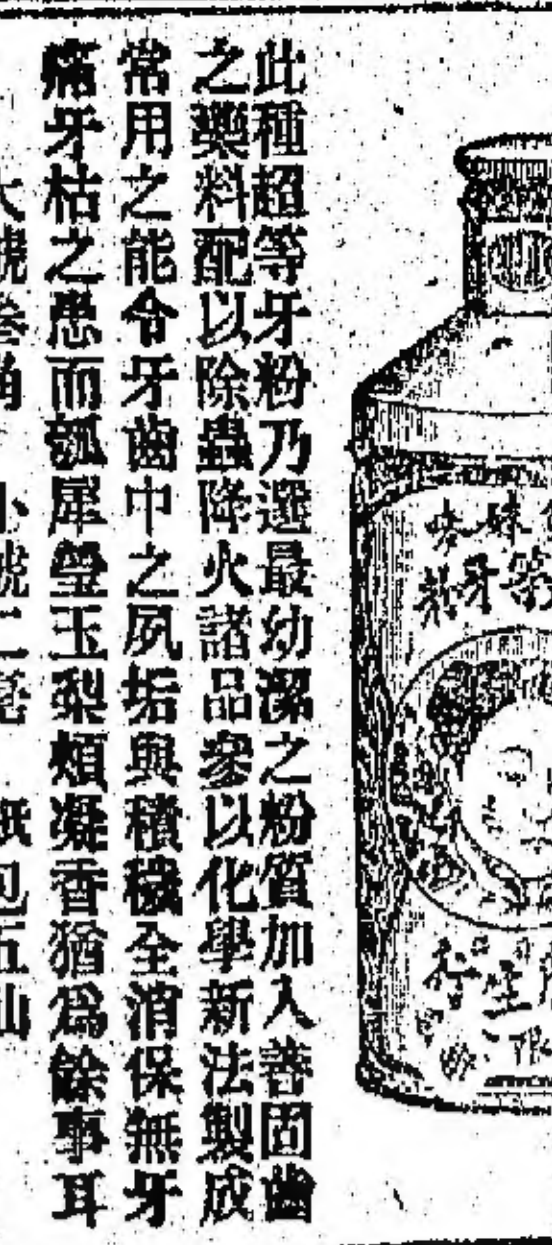 此種超等牙粉乃選最幼潔之粉質加入善固齒
之藥料配以除蟲降火諸品參以化學新法製成
常用之能令牙齒中之夙垢與積穢全消保無牙
痛牙枯之患而瓠犀瑩玉梨頰凝香猶爲餘事耳
大號叁角 小號二毫 紙包五仙